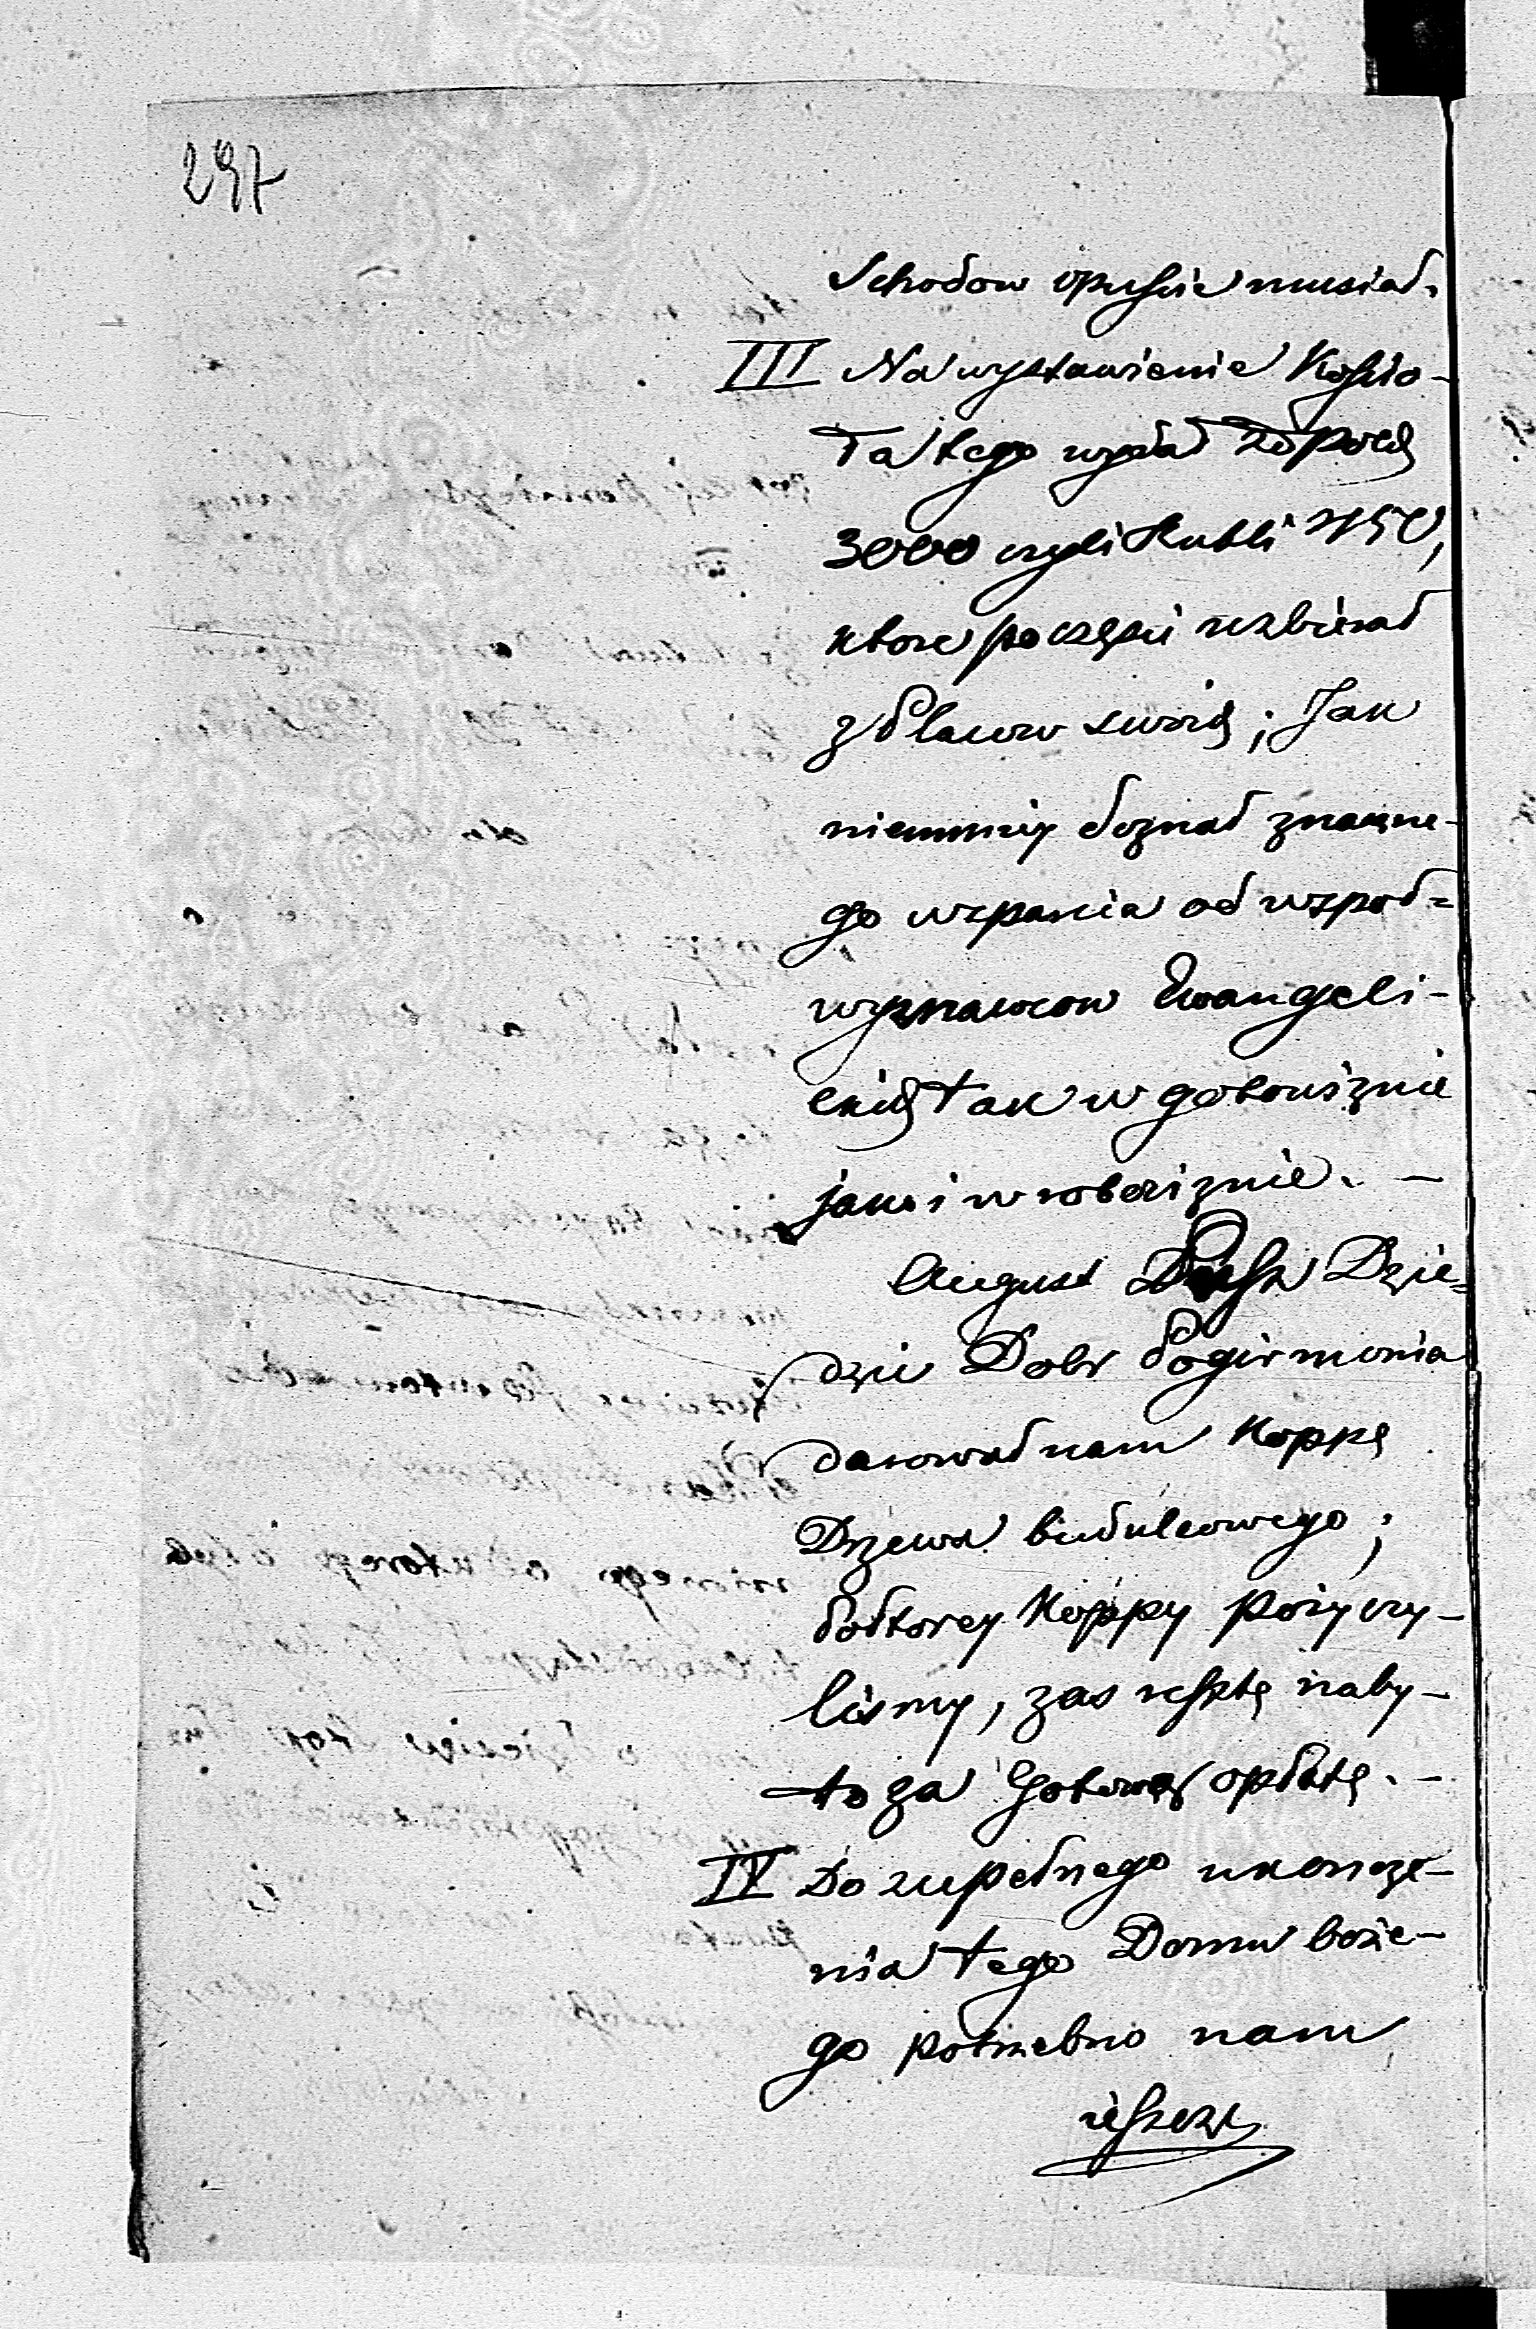 297
Schodow opuście musiał.
III Na wystawienie Kościo-
ła tego wydał Złpolch
3000 czyli Rubli 450,
ktore po części uzbierał
z Placow swoich; Jak
niemniey doznał znaczne-
go wsparcia od wspoł=
wyznawcow Ewangeli-
ckich tak w gotowiznie
jako i w robociznie. —
August Dzie=
dzic Dobr Pogirmonia
darował nam Koppę
Drzewa budulcowego;
Połtorey Koppy pożyczy-
lismy, zas resztę naby-
to za Gotową opłatę. —
IV Do zupełnego ukończe-
nia tego Domu boże-
go potrzebno nam
ieszcze